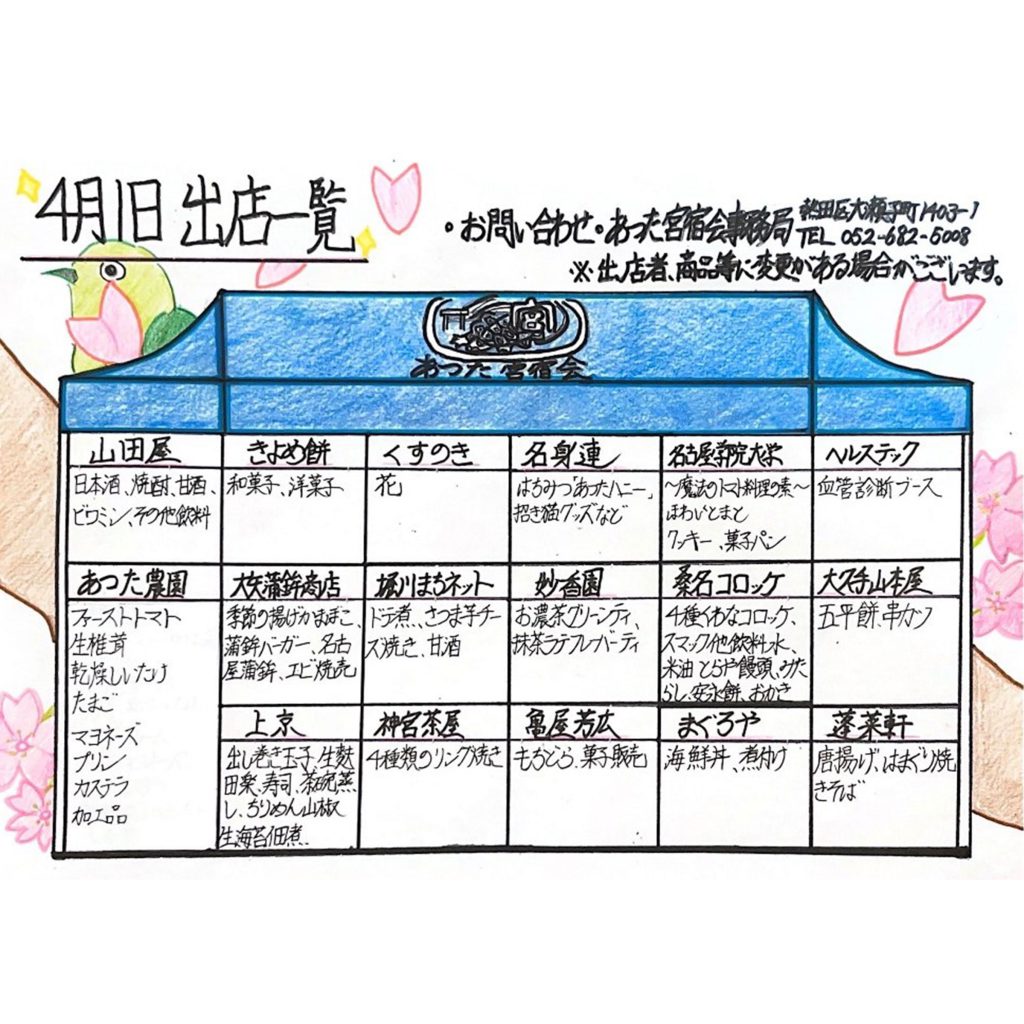 4月1日 出店一覧
・お問い合わせ・あった宮宿会事務局
熱田区大瀬子町1403-1
TEL 052-682-5008
※出店者、商品等に変更がある場合がございます。
宮
あつた宮宿会
山田屋
日本酒、焼酎、甘酒、
ビワミン、その他飲料
きよめ餅
和菓子、洋菓子
くすのき
花
名身連
はちみつ「あつたハニー」
招き猫グッズなど
名古屋学院大学
〜魔法のトマト料理の素〜
ほわいとまと
クッキー、菓子パン
ヘルステック
血管診断ブース
あつた農園
ファーストトマト
生椎茸
乾燥しいたけ
たまご
マヨネーズ
プリン
カステラ
加工品
大矢蒲鉾商店
季節の揚げかまぼこ、
蒲鉾バーガー、名古
屋蒲鉾、エビ焼売
堀川まちネット
ドテ煮、、さつま芋チー
ズ焼き、甘酒
妙香園
お濃茶グリーンティ、
抹茶ラテフレーバーティ
桑名コロッケ
4種くわなコロッケ、
スマック他飲料水、
米油 とらや饅頭、みた
らし、安永餅、おかき
大久手山本屋
五平餅、串カツ
上京
出し巻き玉子、生麩
田楽、寿司、茶碗蒸
し、ちりめん山椒
生海苔佃煮
神宮茶屋
4種類のリング焼き
亀屋芳広
もちどら、菓子販売
まぐろや
海鮮丼、煮付け
蓬莱軒
唐揚げ、はまぐり焼
きそば